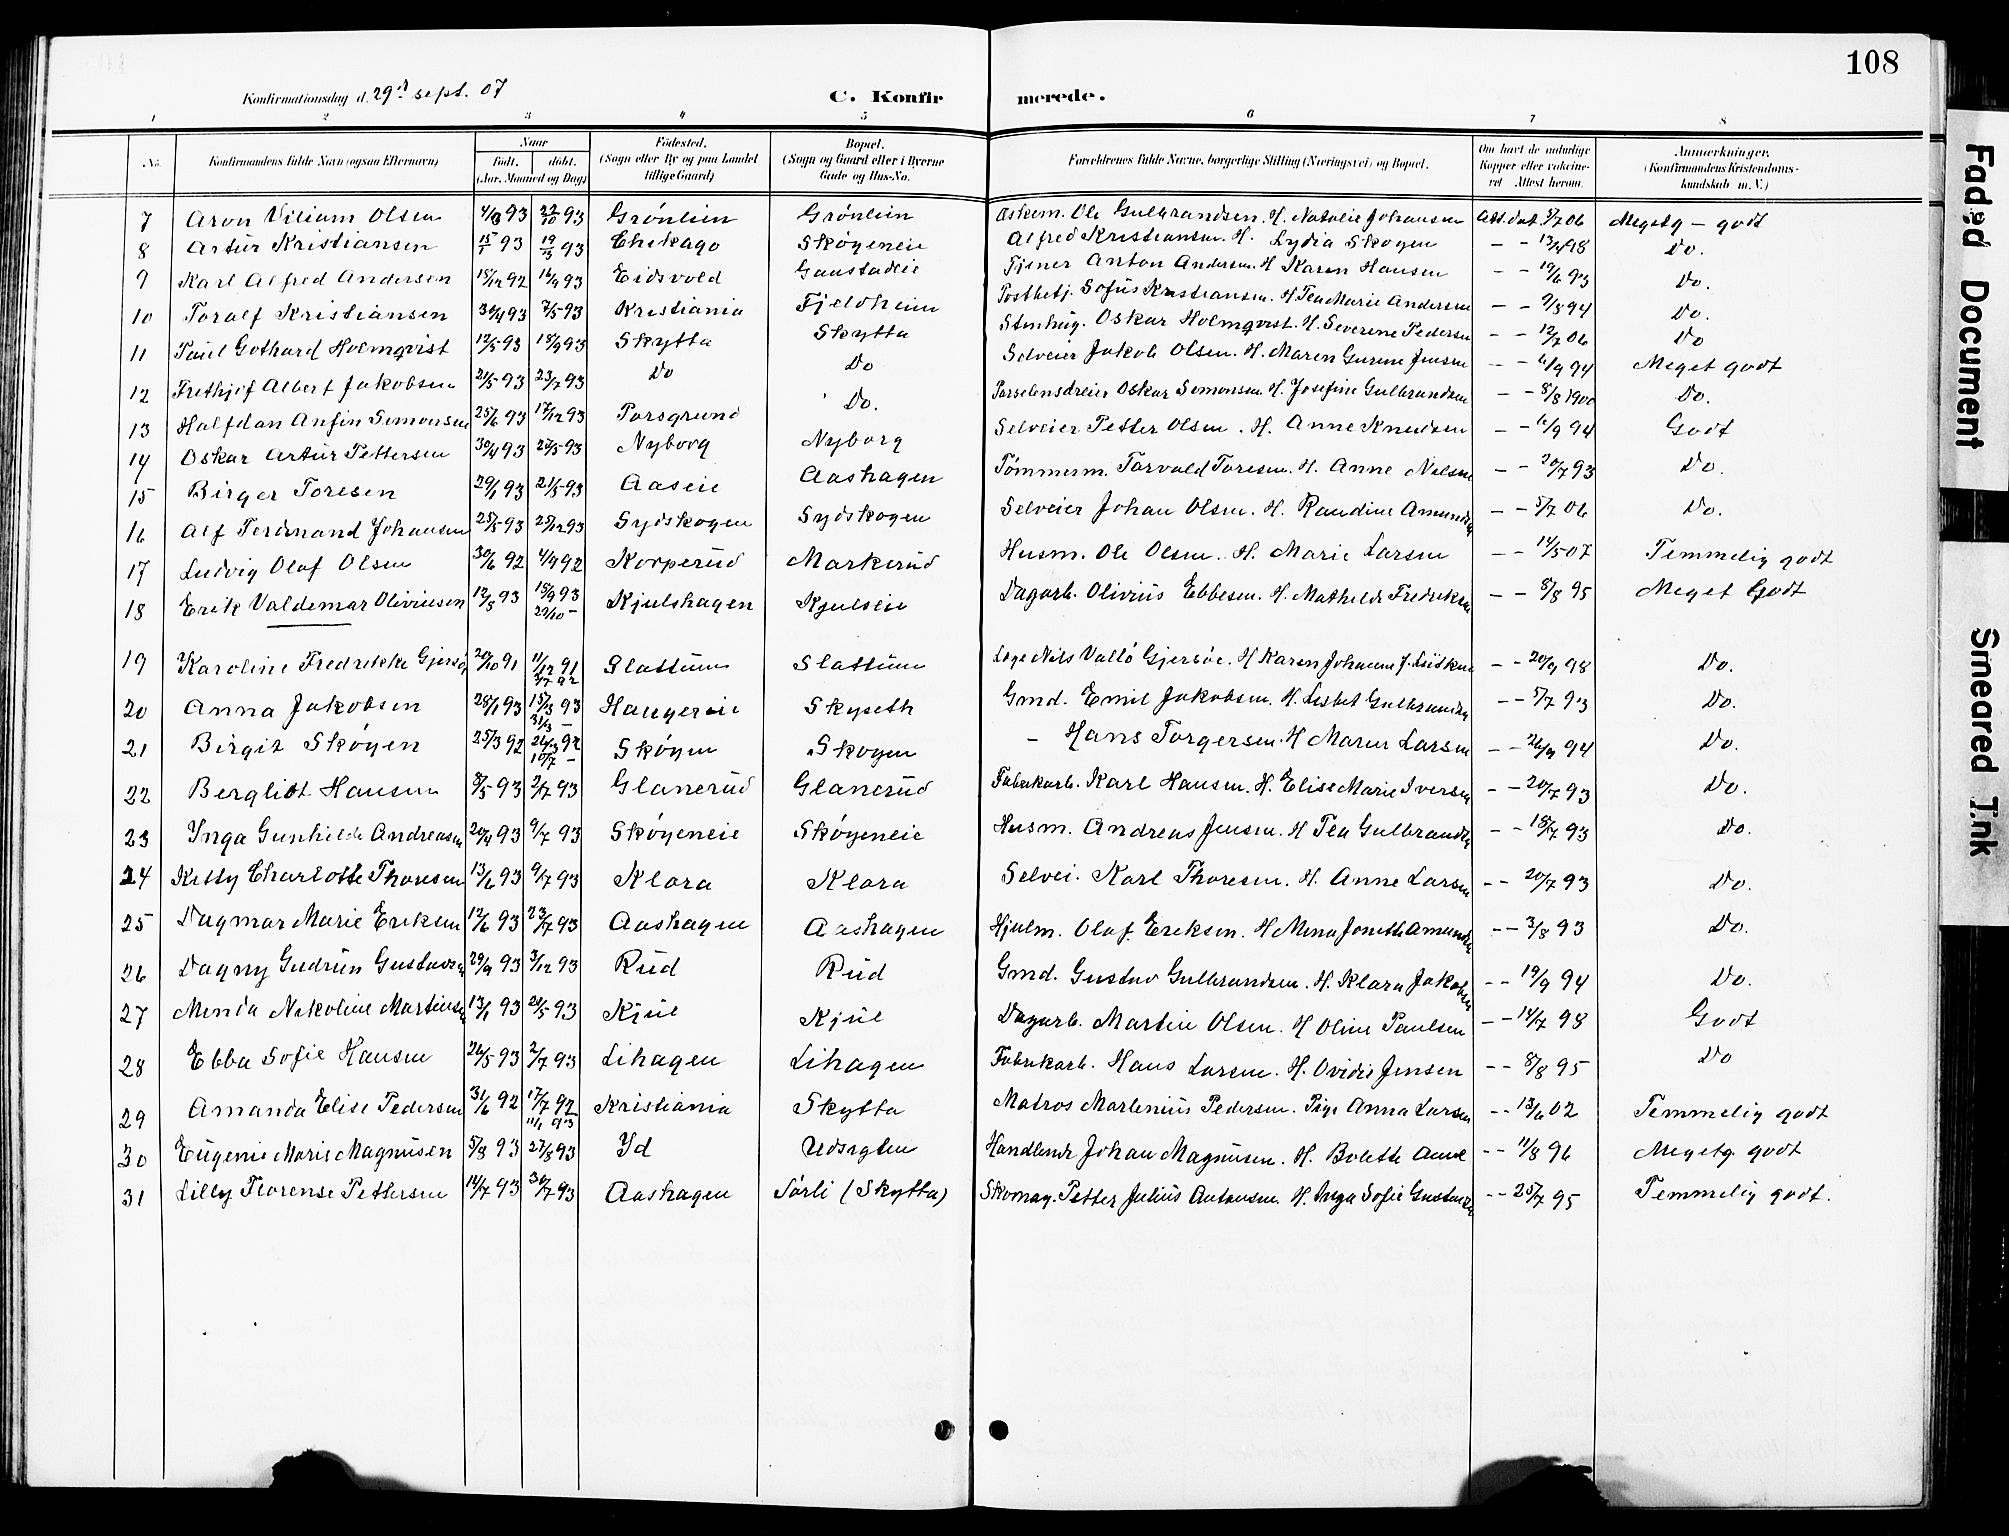 108
Konfirmationsdag d. 29d sept. 07
C. Konfirmerede.
1 2 3 4 5 6 7 8
No. Konfirmandens fulde Navn (ogsaa Efternavn) Naar født. døbt. (Aar, Maaned og Dag) Fødested. (Sogn eller By og paa Landet tillige Gaard) Bopæl. (Sogn og Gaard eller i Byerne Gade og Hus-No. Forældrenes fulde Navne, borgerlige Stilling (Næringsvei) og Bopæl. Om havt de naturlige Kopper eller vakcineret Attest herom. Anmærkninger. (Konfirmandens Kristendomskundskab m. V.)
7 Aron Viliam Olsen 93 22/10 93 Grönlein Grönlein Ole Gulbrandsen. H. Natalie Johansen Att. dat. 5/7 06 Megetg - godt
8 Artur Kristiansen 93 19/3 93 Chikago Skøyeneie Alfred Kristiansen. H. Lydia Skogen - - 98 Do.
9 Karl Alfred Andersen 18/12 92 16/4 93 Eidsvold Gaustadeie Tjener Anton Andersen. H Karen Hansen - - 19/6 93 Do.
10 Toralf Kristiansen 30/4 93 7/5 93 Kristiania Fjeldheim Postbetj. Sofus Kristiansen. H Tea Marie Andersen - - 9/8 94 Do.
11 Paul Gothard Holmqvist 12/5 93 18/9 93 Skytta Skytta Stenhug. Oskar Holmqvist. H. Severine Pedersen - - 12/7 06 Do
12 Frithjof Albert Jakobsen 21/5 93 23/7 93 Do Do Selveier Jakob Olsen. H. Maren Gurine Jensen - 6/9 94 Meget godt
13 Halfdan Anfin Simonsen 25/6 93 17/12 93 Porsgrund Do. Porselensdreier Oskar Simonsen H. Josefine Gulbrandsen - - 8/8 1900 Do.
14 Oskar Artur Pettersen 30/4 93 22/5 93 Nyborg Nyborg Selveier Petter Olsen. H. Anne Knudsen - - 6/9 94 Godt
15 Birger Toresen 29/1 93 21/5 93 Aaseie Aashagen Tømmerm. Torvald Toresen. H. Anne Nilsen - - 20/7 93 Do.
16 Alf Ferdinand Johansen 25/5 93 25/12 93 Sydskogen Sydskogen Selveier Johan Olsen. H. Randine Amundsen - - 5/7 06 Do.
17 Ludvig Olaf Olsen 30/6 92 4/9 92 Korperud Markerud Husm. Ole Olsen. H. Marie Larsen - - 14/5 07 Temmelig godt
18 Erik Valdemar Oliviusen 12/5 93 18/9 93 29/10 - Kjulshagen Kjulseie Dagarb. Olivius Ebbesen. H. Mathilde Fredriksen - - 8/8 95 Meget Godt
19 Karoline Fredrikke Gjersøe 20/10 91 11/12 91 Slattum Slattum Læge Nils Vallö Gjersöe. H Karen Johanne J. - - 20/9 98 Do.
20 Anna Jakobsen 28/1 93 15/3 93 31/3 - Haugereie Skyseth Gmd. Emil Jakobsen. H. Lisbet Gulbrandsen - - 5/7 93 Do.
21 Birgit Skøyen 25/3 92 26/3 92 10/7 - Skøyen Skøyen - Hans Torgersen. H Maren Larsen - - 26/9 94 Do.
22 Bergliot Hansen 8/5 93 2/7 93 Glanerud Glanerud Fabrikarb. Karl Hansen. H. Elise Marie Iversen - - 20/7 93 Do.
23 Ynga Gunhilde Andreasen 20/4 93 9/7 93 Skøyeneie Skøyeneie Husm. Andreas Jensen. H Tea Gulbrandsen - - 18/7 93 Do.
24 Kitty Charlotte Thoresen 13/6 93 9/7 93 Klara Klara Selvei. Karl Thoresen. H. Anne Larsen - - 20/7 93 Do.
25 Dagmar Marie Eriksen 12/6 93 23/7 93 Aashagen Aashagen Hjulm. Olaf Eriksen. H Mina Jonette Amundsen - - 3/8 93 Do.
26 Dagny Gudrun Gustavsen 29/9 93 3/12 93 Rud Rud Gmd. Gustav Gulbrandsen. H. Klara Jakobsen - - 19/9 94 Do.
27 Minda Nikoline Martinsen 13/1 93 21/5 93 Kjul Kjul Dagarb. Martin Olsen. H Oline Paulsen - - 14/7 98 Godt
28 Ebba Sofie Hansen 26/5 93 2/7 93 Lihagen Lihagen Fabrikarb. Hans Larsen. H. Ovidie Jensen - - 8/8 95 Do
29 Amanda Elise Pedersen 31/6 92 17/7 92 11/1 93 Kristiania Skytta Matros Martinius Pedersen. Pige Anna Larsen - - 13/6 02 Temmelig godt
30 Eugenie Marie Magnusen 5/8 93 27/8 93 Yd Udsigten Handlende Johan Magnusen. H. Bolette - - 11/8 96 Megetg godt
31 Lilly Florense Pettersen 14/7 93 30/7 93 Aashagen Sørli (Skytta) Skomag. Petter Julius Antonsen. H. Inga Sofie Gustavsen - - 25/7 95 Temmelig godt.
Faded Document
Smeared Ink